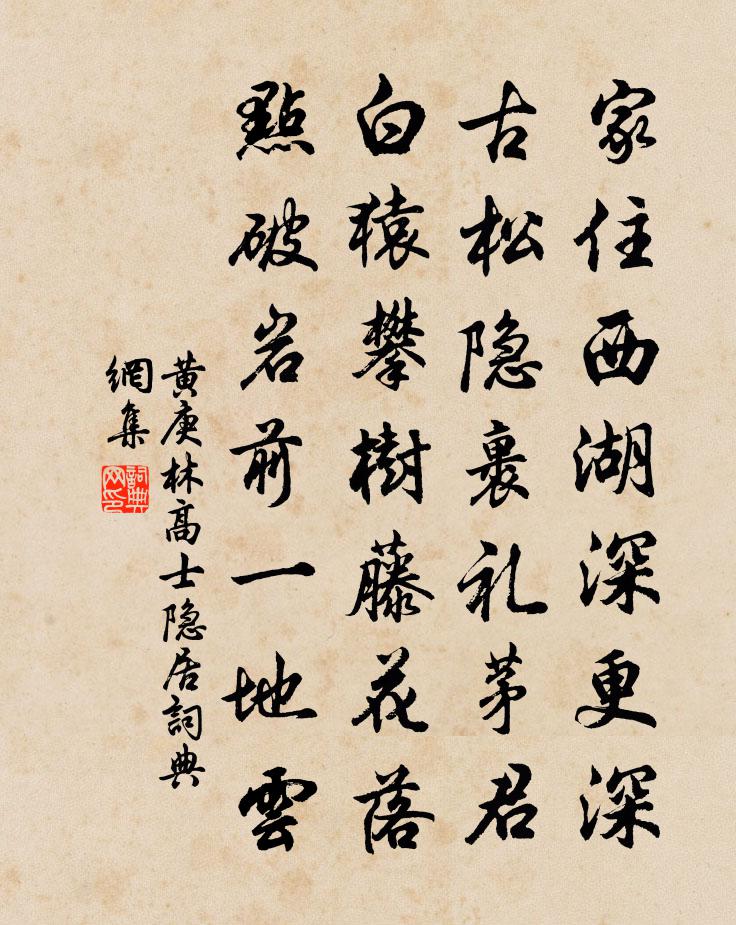 家住西湖深更深
古松隐裹礼茅君
白猿攀樹藤花落
點破岩前一地雲
黄庚林高士隐居詞典
網集
詞典
网印